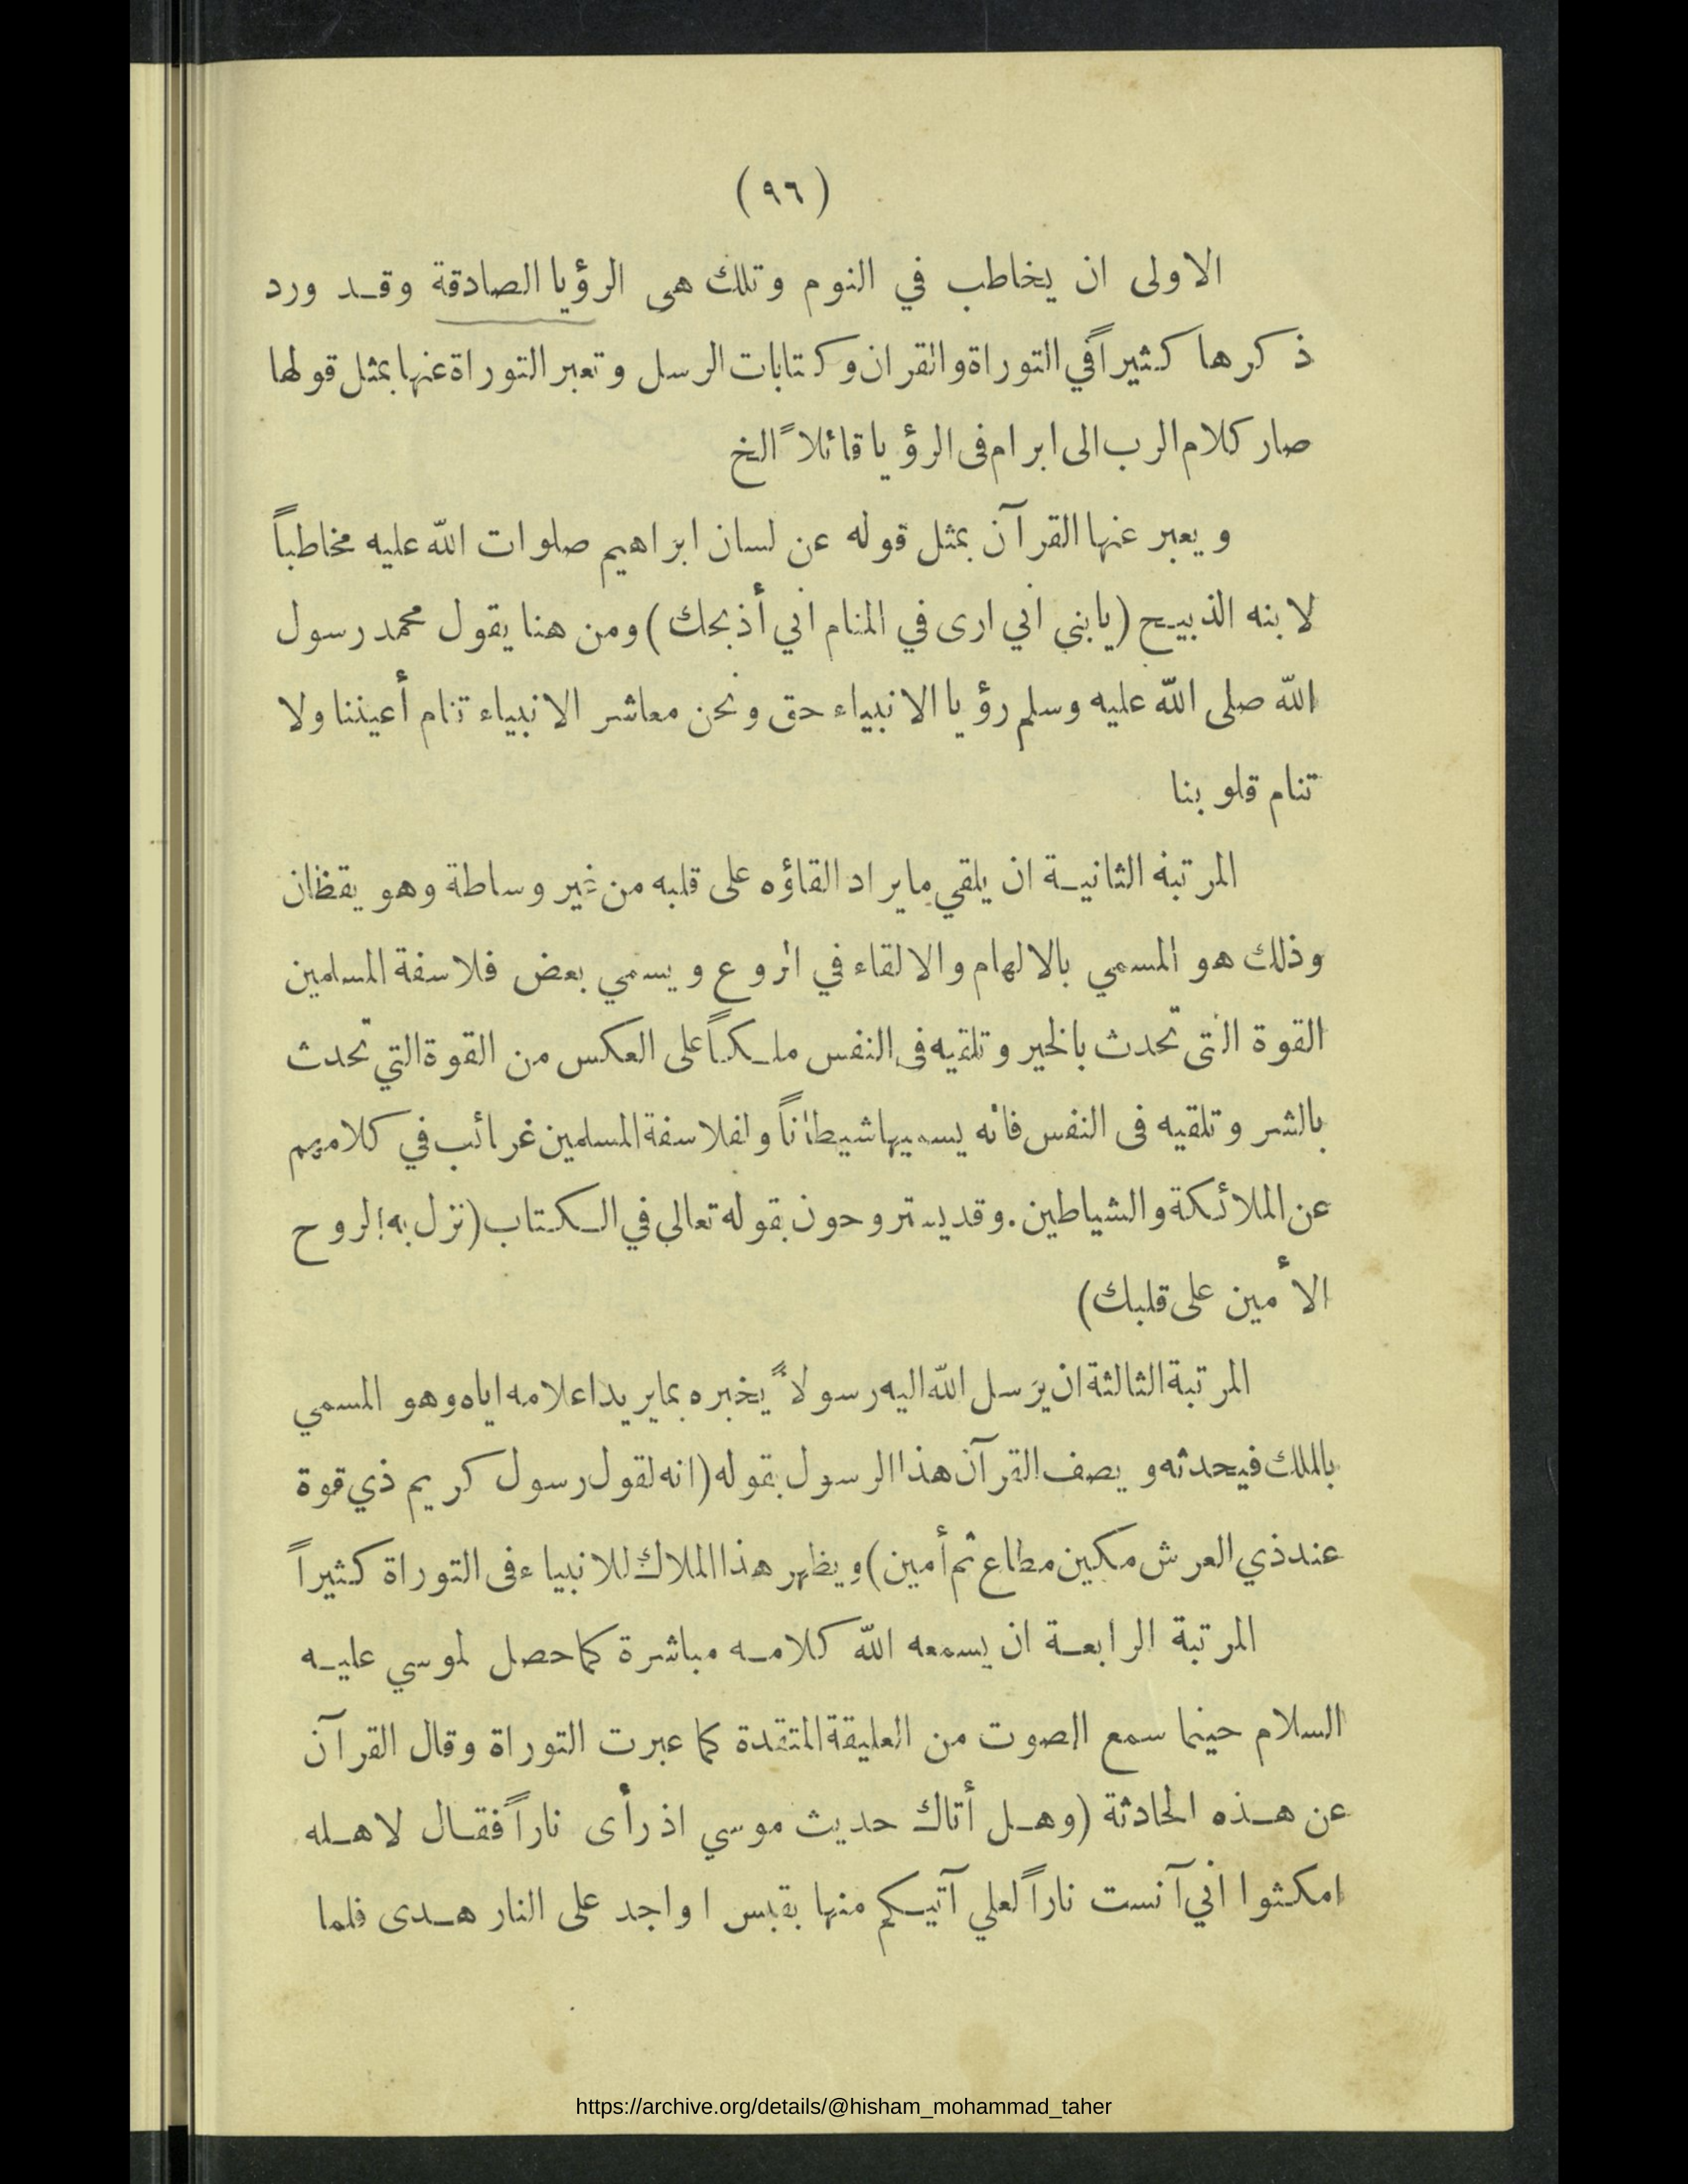 (٩٦)
الاولى ان يخاطب في النوم وتلك هى الرؤيا الصادقة وقد ورد
ذكرها كثيراً في التوراة والقران وكتابات الرسل وتعبر التوراة عنها بمثل قولها
صار كلام الرب الى ابرام فى الرؤيا قائلاً الخ
ويعبر عنها القرآن بمثل قوله عن لسان ابراهيم صلوات الله عليه مخاطباً
لابنه الذبيح (يابنى اني ارى في المنام اني أذبحك) ومن هنا يقول محمد رسول
الله صلى الله عليه وسلم رؤيا الانبياء حق ونحن معاشر الانبياء تنام أعيننا ولا
تنام قلوبنا
المرتبة الثانية ان يلقي ما يراد القاؤه على قلبه من غير وساطة وهو يقظان
وذلك هو المسمي بالالهام والالقاء في الروع ويسمي بعض فلاسفة المسلمين
القوة التى تحدث بالخير وتلقيه فى النفس ملكاً على العكس من القوة التي تحدث
بالشر وتلقيه فى النفس فانه يسميها شيطاناً ولفلاسفة المسلمين غرائب في كلامهم
عن الملائكة والشياطين. وقد يستروحون بقوله تعالى في الكتاب (نزل به الروح
الأمين على قلبك)
المرتبة الثالثة ان يرسل الله اليه رسولاً يخبره بما يريد اعلامه اياه وهو المسمي
بالملك فيحدثه ويصف القرآن هذا الرسول بقوله (انه لقول رسول كريم ذي قوة
عند ذي العرش مكين مطاع ثم أمين) ويظهر هذا الملاك للانبياء فى التوراة كثيراً
المرتبة الرابعة ان يسمعه الله كلامه مباشرة كما حصل لموسي عليه
السلام حينما سمع الصوت من العليقة المتقدة كما عبرت التوراة وقال القرآن
عن هذه الحادثة (وهل أتاك حديث موسي اذ رأى ناراً فقال لاهله
امكثوا اني آنست ناراً لعلي آتيكم منها بقبس او اجد على النار هدى فلما
https://archive.org/details/@hisham_mohammad_taher